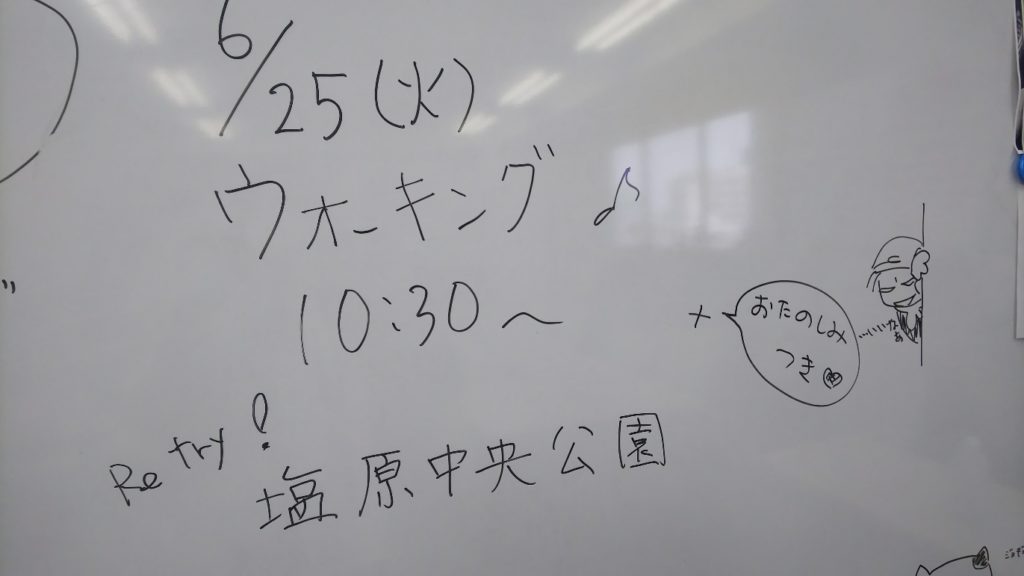 6/25(火)
ウォーキング♪
10:30〜
+ おたのしみ
つき♥
…いいなぁ
Re try!
塩原中央公園